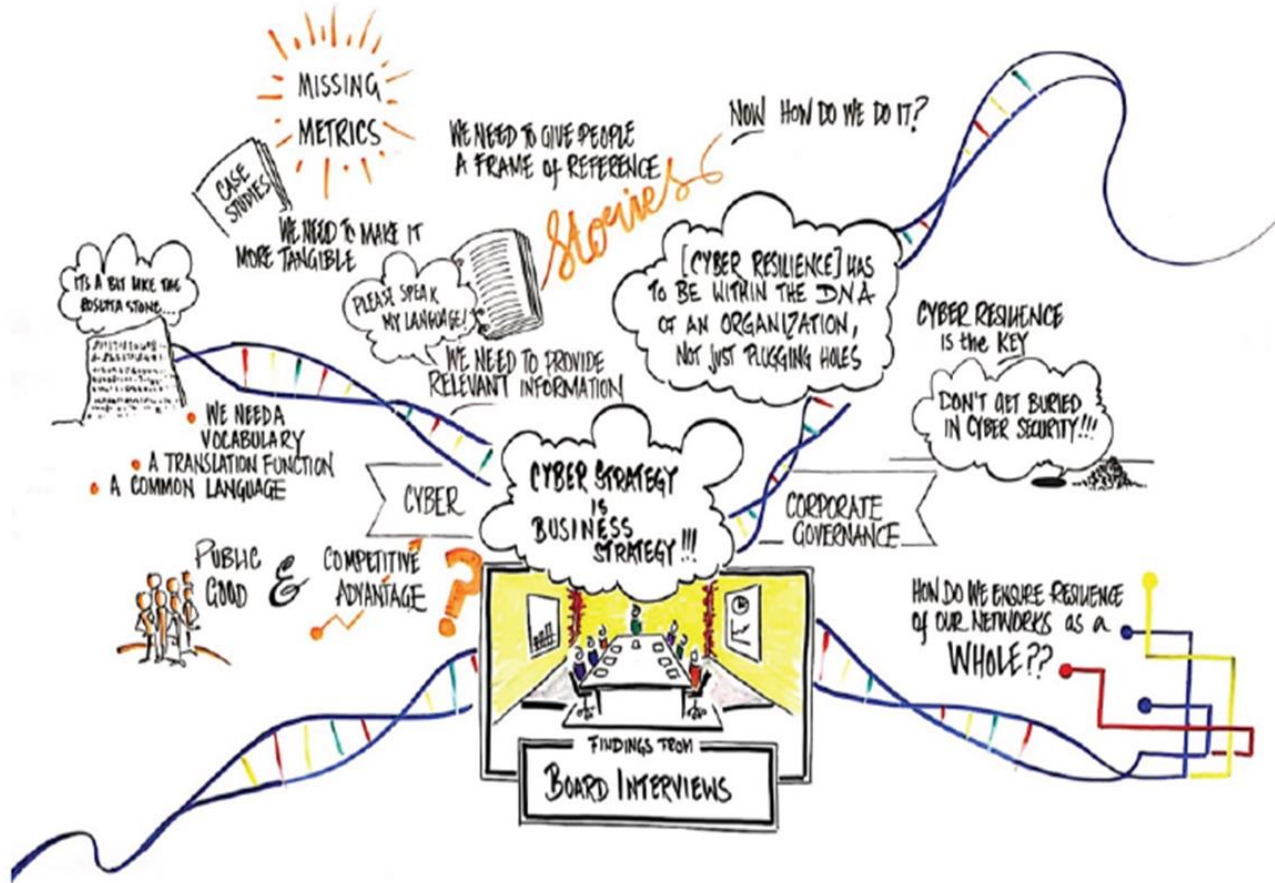 MISSING
METRICS
CASE
STUDIES
WE NEED TO MAKE IT
MORE TANGIBLE
WE NEED TO GIVE PEOPLE
A FRAME of REFERENCE
Stories
NOW HOW DO WE DO IT?
IT'S A BIT LIKE THE
ROSETTA STONE...
PLEASE SPEAK
MY LANGUAGE!
WE NEED TO PROVIDE
RELEVANT INFORMATION
[CYBER RESILIENCE] HAS
TO BE WITHIN THE DNA
OF AN ORGANIZATION,
NOT JUST PLUGGING HOLES
CYBER RESILIENCE
is the KEY
DON'T GET BURIED
IN CYBER SECURITY!!!
• WE NEED A
VOCABULARY
• A TRANSLATION FUNCTION
• A COMMON LANGUAGE
CYBER
CYBER STRATEGY
IS
BUSINESS
STRATEGY!!!
CORPORATE
GOVERNANCE
PUBLIC
GOOD & COMPETITIVE
ADVANTAGE ?
HOW DO WE ENSURE RESILIENCE
of OUR NETWORKS as a
WHOLE??
FINDINGS FROM
BOARD INTERVIEWS